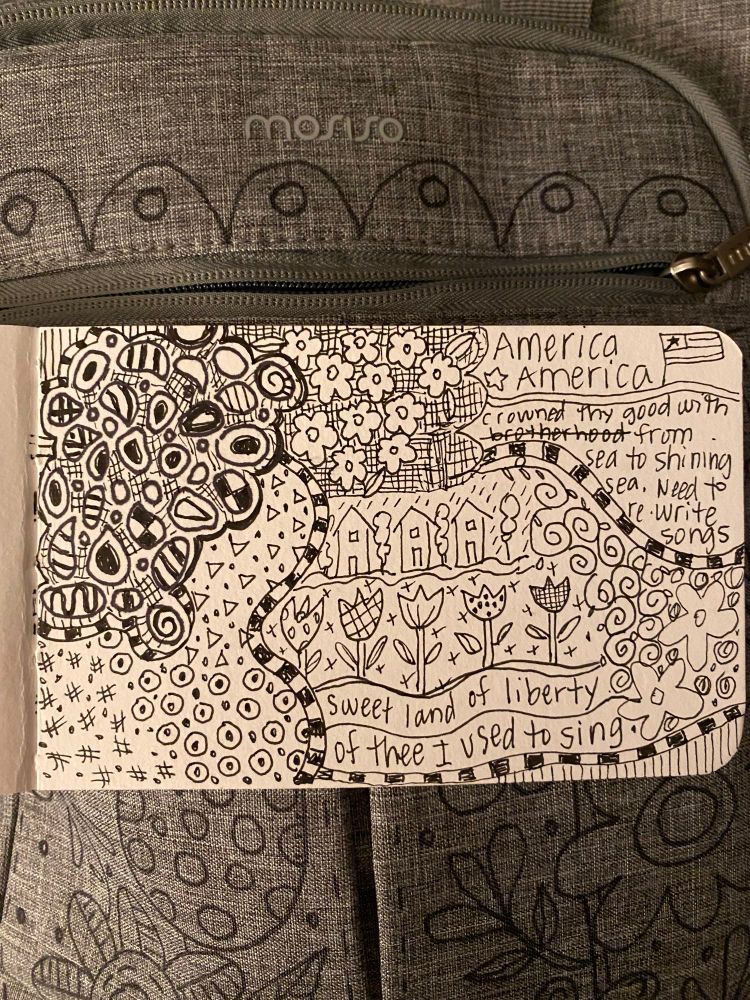 mosiso
America
America
crowned thy good with
brotherhood from
sea to shining
sea. Need to
re-write
songs
sweet land of liberty
of thee I used to sing.